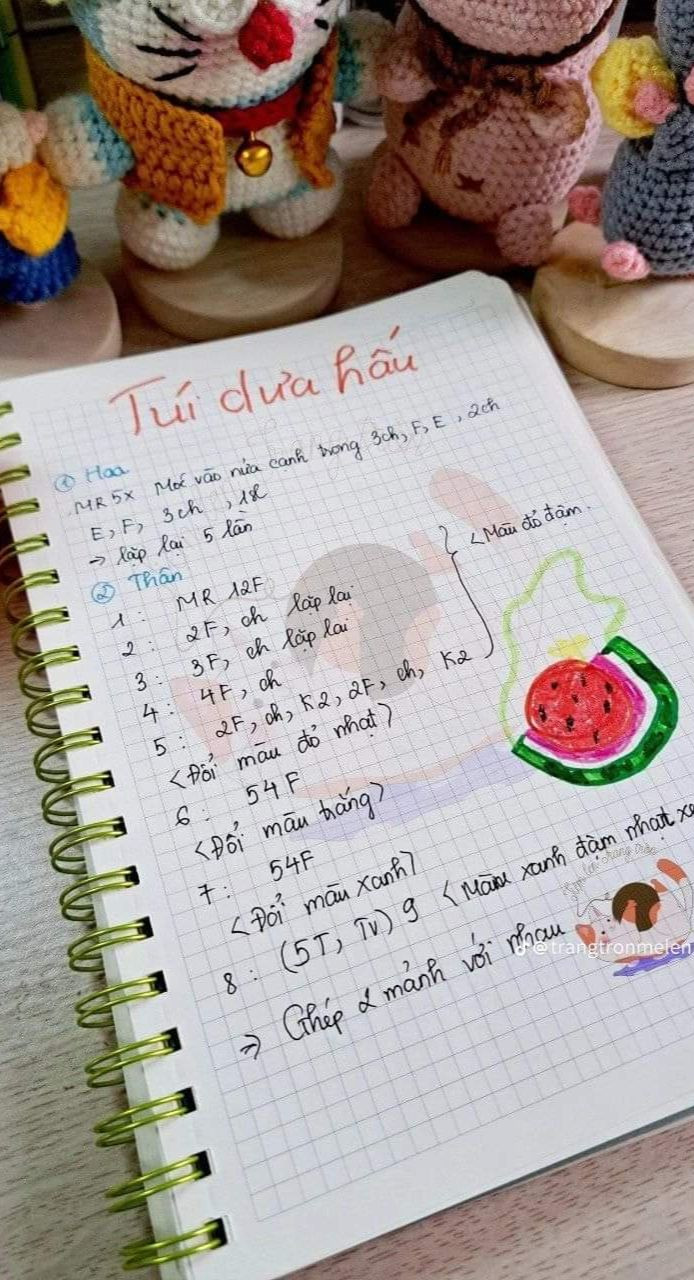 Túi dưa hấu
① Hoa
MR 5X Móc vào nửa canh trong 3ch, F, E, 2ch
E, F, 3ch, 1sl
→ lặp lại 5 lần
② Thân
1: MR 12F
2: 2F, ch lặp lại
3: 3F, ch lặp lại
4: 4F, ch
5: 2F, ch, K2, 2F, ch, K2
<Màu đỏ đậm.
<Đổi màu đỏ nhạt>
6: 54F
<Đổi màu trắng>
7: 54F
<Đổi màu xanh>
8: (5T, TV) 9 <Màu xanh đậm nhạt
⇒ Ghép 2 mảnh với nhau
@trangtronmelen